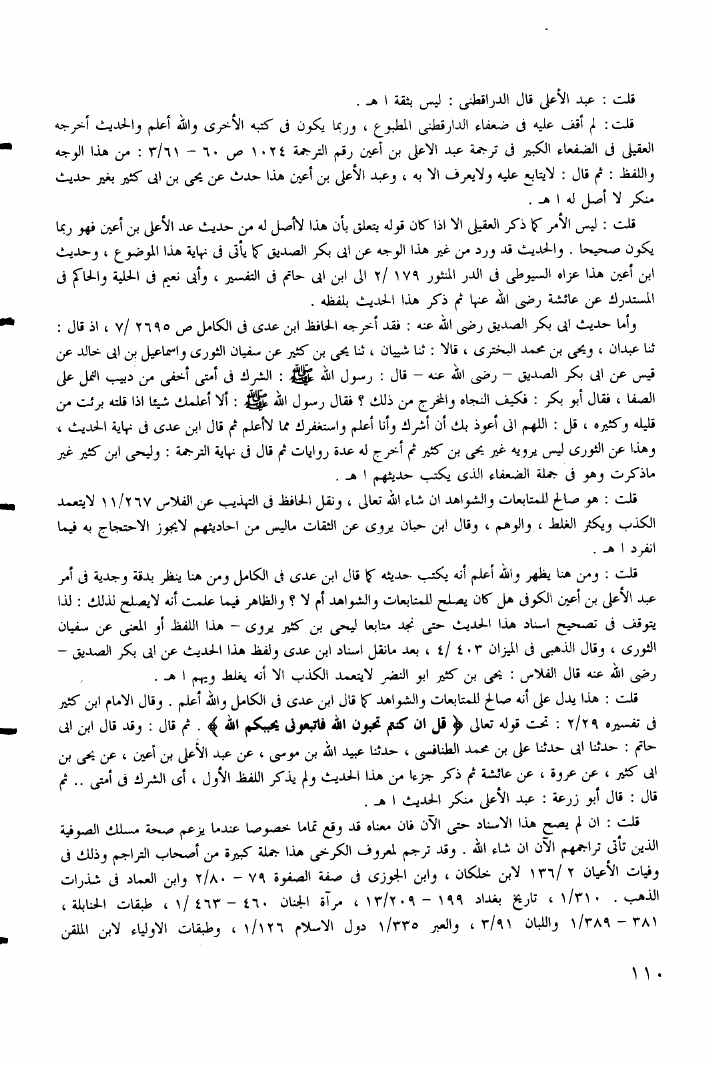 قلت : عبد الأعلى قال الدراقطنى : ليس بثقة ا هـ .
قلت : لم أقف عليه فى ضعفاء الدارقطنى المطبوع ، وربما يكون فى كتبه الأخرى والله أعلم والحديث أخرجه
العقيلى فى الضعفاء الكبير فى ترجمة عبد الاعلى بن أعين رقم الترجمة ١٠٢٤ ص ٦٠ – ٣/٦١ : من هذا الوجه
واللفظ : ثم قال : لايتابع عليه ولايعرف الا به ، وعبد الأعلى بن أعين هذا حدث عن يحيى بن ابى كثير بغير حديث
منكر لا أصل له ا هـ .
قلت : ليس الأمر كما ذكر العقيلى الا اذا كان قوله يتعلق بأن هذا لاأصل له من حديث عد الأعلى بن أعين فهو ربما
يكون صحيحا . والحديث قد ورد من غير هذا الوجه عن ابى بكر الصديق كما يأتى فى نهاية هذا الموضوع ، وحديث
ابن أعين هذا عزاه السيوطى فى الدر المنثور ١٧٩ /٢ الى ابن ابى حاتم فى التفسير ، وأبى نعيم فى الحلية والحاكم فى
المستدرك عن عائشة رضى الله عنها ثم ذكر هذا الحديث بلفظه .
وأما حديث ابى بكر الصديق رضى الله عنه : فقد أخرجه الحافظ ابن عدى فى الكامل ص ٢٦٩٥ /٧ ، اذ قال :
ثنا عبدان ، ويحيى بن محمد البخترى ، قالا : ثنا شيبان ، ثنا يحيى بن كثير عن سفيان الثورى واسماعيل بن ابى خالد عن
قيس عن ابى بكر الصديق – رضى الله عنه – قال : رسول الله ﷺ : الشرك فى أمتى أخفى من دبيب النمل على
الصفا ، فقال أبو بكر : فكيف النجاه والمخرج من ذلك ؟ فقال رسول الله ﷺ : ألا أعلمك شيئا اذا قلته برئت من
قليله وكثيره ، قل : اللهم انى أعوذ بك أن أشرك وأنا أعلم واستغفرك مما لاأعلم ثم قال ابن عدى فى نهاية الحديث ،
وهذا عن الثورى ليس يرويه غير يحيى بن كثير ثم أخرج له عدة روايات ثم قال فى نهاية الترجمة : وليحى ابن كثير غير
ماذكرت وهو فى جملة الضعفاء الذى يكتب حديثهم ا هـ .
قلت : هو صالح للمتابعات والشواهد ان شاء الله تعالى ، ونقل الحافظ فى التهذيب عن الفلاس ١١/٢٦٧ لايتعمد
الكذب ويكثر الغلط ، والوهم ، وقال ابن حبان يروى عن الثقات ماليس من احاديثهم لايجوز الاحتجاج به فيما
انفرد ا هـ .
قلت : ومن هنا يظهر والله أعلم أنه يكتب حديثه كما قال ابن عدى فى الكامل ومن هنا ينظر بدقة وجدية فى أمر
عبد الأعلى بن أعين الكوفى هل كان يصلح للمتابعات والشواهد أم لا ؟ والظاهر فيما علمت أنه لايصلح لذلك : لذا
يتوقف فى تصحيح اسناد هذا الحديث حتى نجد متابعا ليحيى بن كثير يروى – هذا اللفظ أو المعنى عن سفيان
الثورى ، وقال الذهبى فى الميزان ٤٠٣ /٤ ، بعد مانقل اسناد ابن عدى ولفظ هذا الحديث عن ابى بكر الصديق –
رضى الله عنه قال الفلاس : يحيى بن كثير ابو النضر لايتعمد الكذب الا أنه يغلط ويهم ا هـ .
قلت : هذا يدل على أنه صالح للمتابعات والشواهد كما قال ابن عدى فى الكامل والله أعلم . وقال الامام ابن كثير
فى تفسيره ٢/٢٩ : تحت قوله تعالى ﴿ قل ان كنتم تحبون الله فاتبعونى يحببكم الله ﴾ . ثم قال : وقد قال ابن ابى
حاتم : حدثنا ابى حدثنا على بن محمد الطنافسى ، حدثنا عبيد الله بن موسى ، عن عبد الأعلى بن أعين ، عن يحيى بن
ابى كثير ، عن عروة ، عن عائشة ثم ذكر جزءا من هذا الحديث ولم يذكر اللفظ الأول ، أى الشرك فى أمتى .. ثم
قال : قال أبو زرعة : عبد الأعلى منكر الحديث ا هـ .
قلت : ان لم يصح هذا الاسناد حتى الآن فان معناه قد وقع تماما خصوصا عندما يزعم صحة مسلك الصوفية
الذين تأتى تراجمهم الآن ان شاء الله . وقد ترجم لمعروف الكرخى هذا جملة كبيرة من أصحاب التراجم وذلك فى
وفيات الأعيان ٢ /١٣٦ لابن خلكان ، وابن الجوزى فى صفة الصفوة ٧٩ – ٢/٨٠ وابن العماد فى شذرات
الذهب . ١/٣١٠ ، تاريخ بغداد ١٩٩ – ١٣/٢٠٩ ، مرآة الجنان ٤٦٠ – ٤٦٣ /١ ، طبقات الحنابلة ،
٣٨١ – ١/٣٨٩ واللبان ٣/٩١ ، والعبر ١/٣٣٥ دول الاسلام ١/١٢٦ ، وطبقات الاولياء لابن الملقن
١١٠